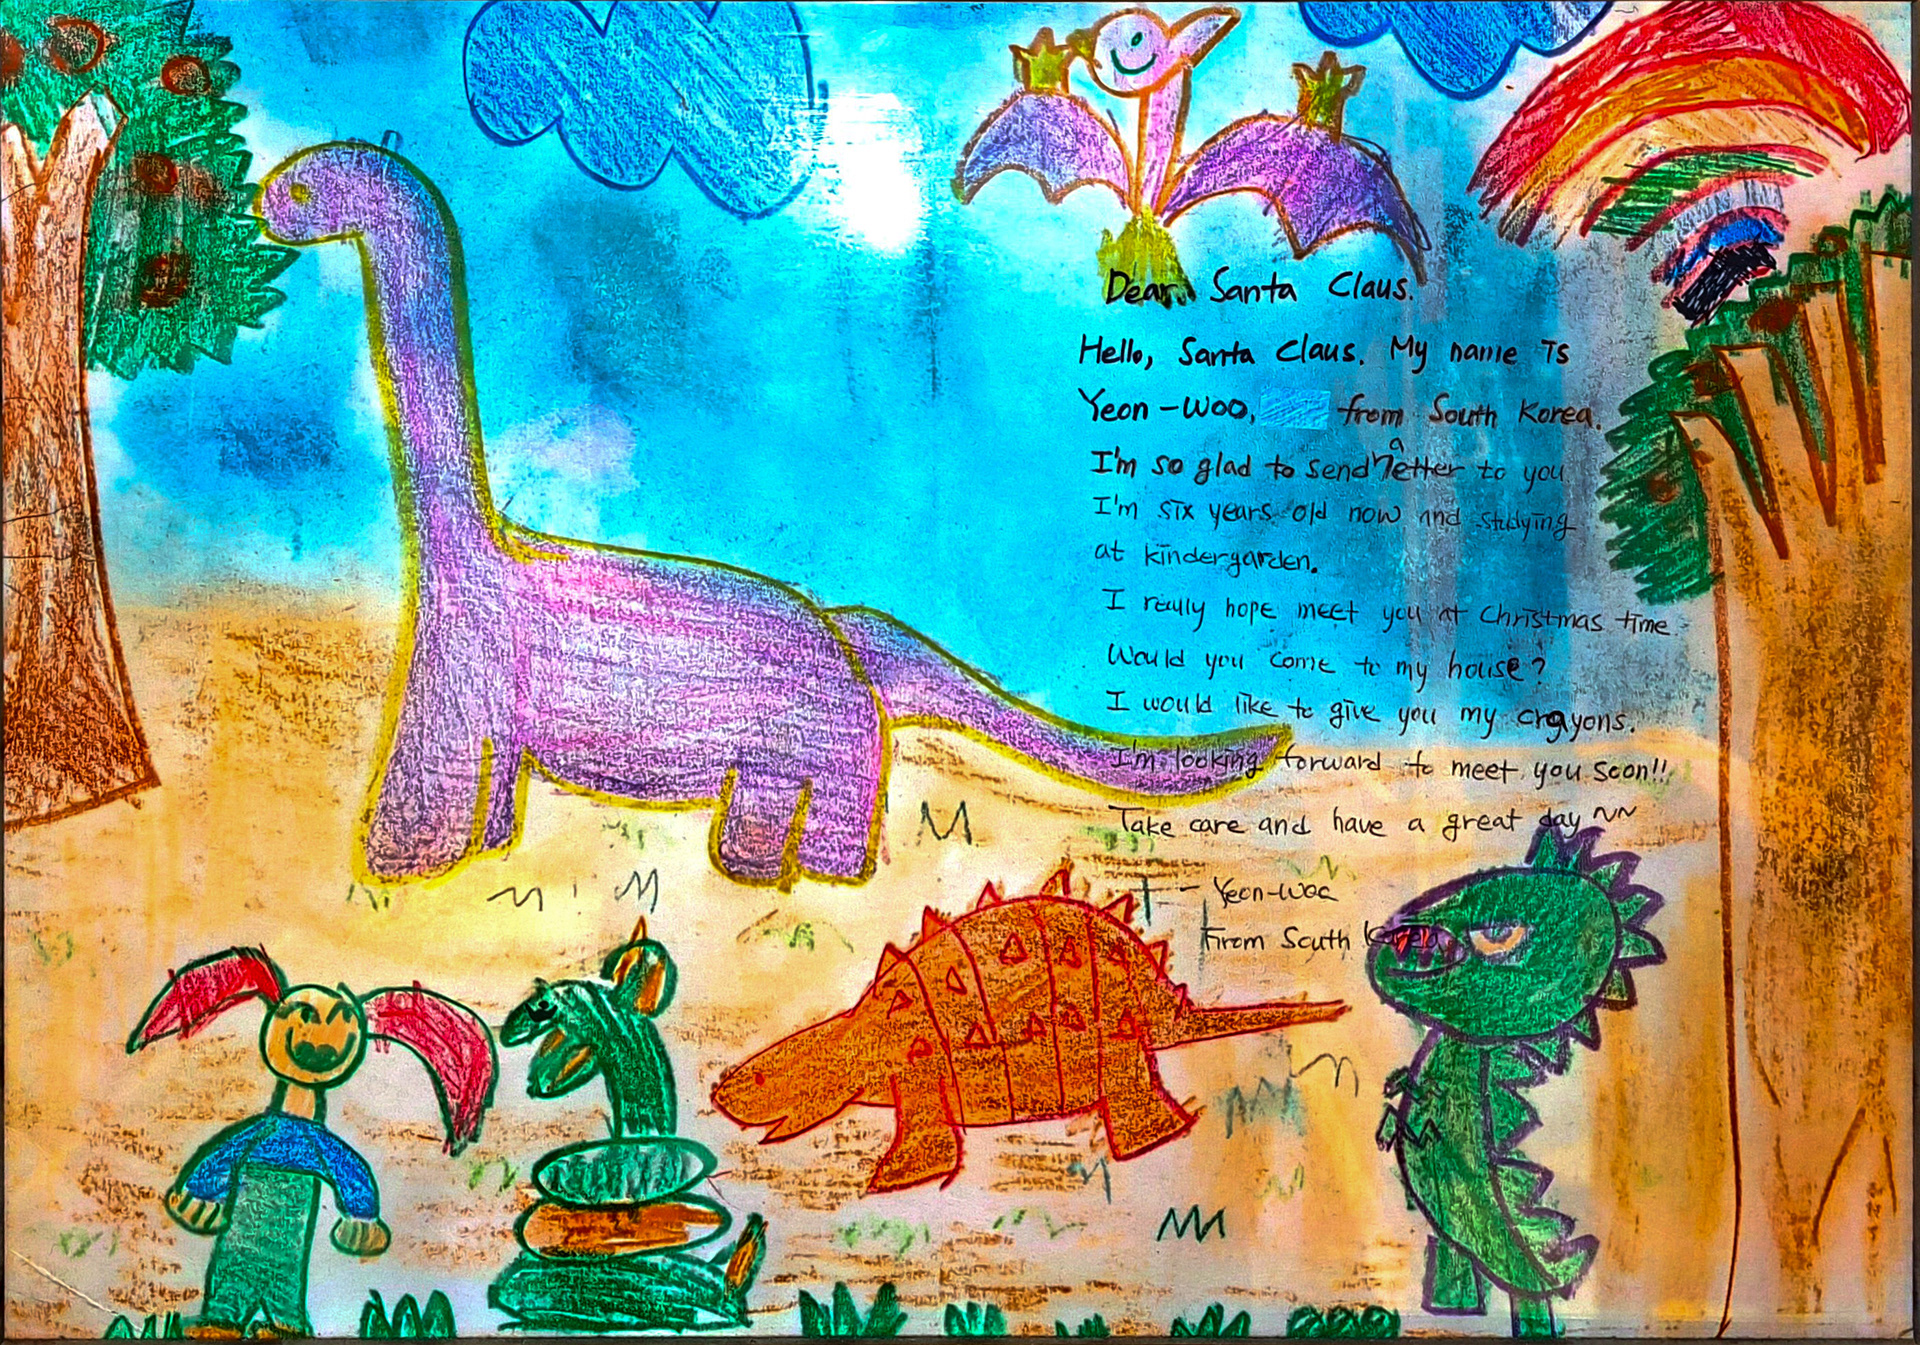 Dear. Santa Claus.
Hello, Santa Claus. My name is
Yeon-Woo, from South Korea.
I'm so glad to send a letter to you
I'm six years old now and studying
at kindergarden.
I really hope meet you at christmas time.
Would you come to my house?
I would like to give you my crayons.
I'm looking forward to meet you soon!!
Take care and have a great day ~~
- Yeon-Woo
From South Korea